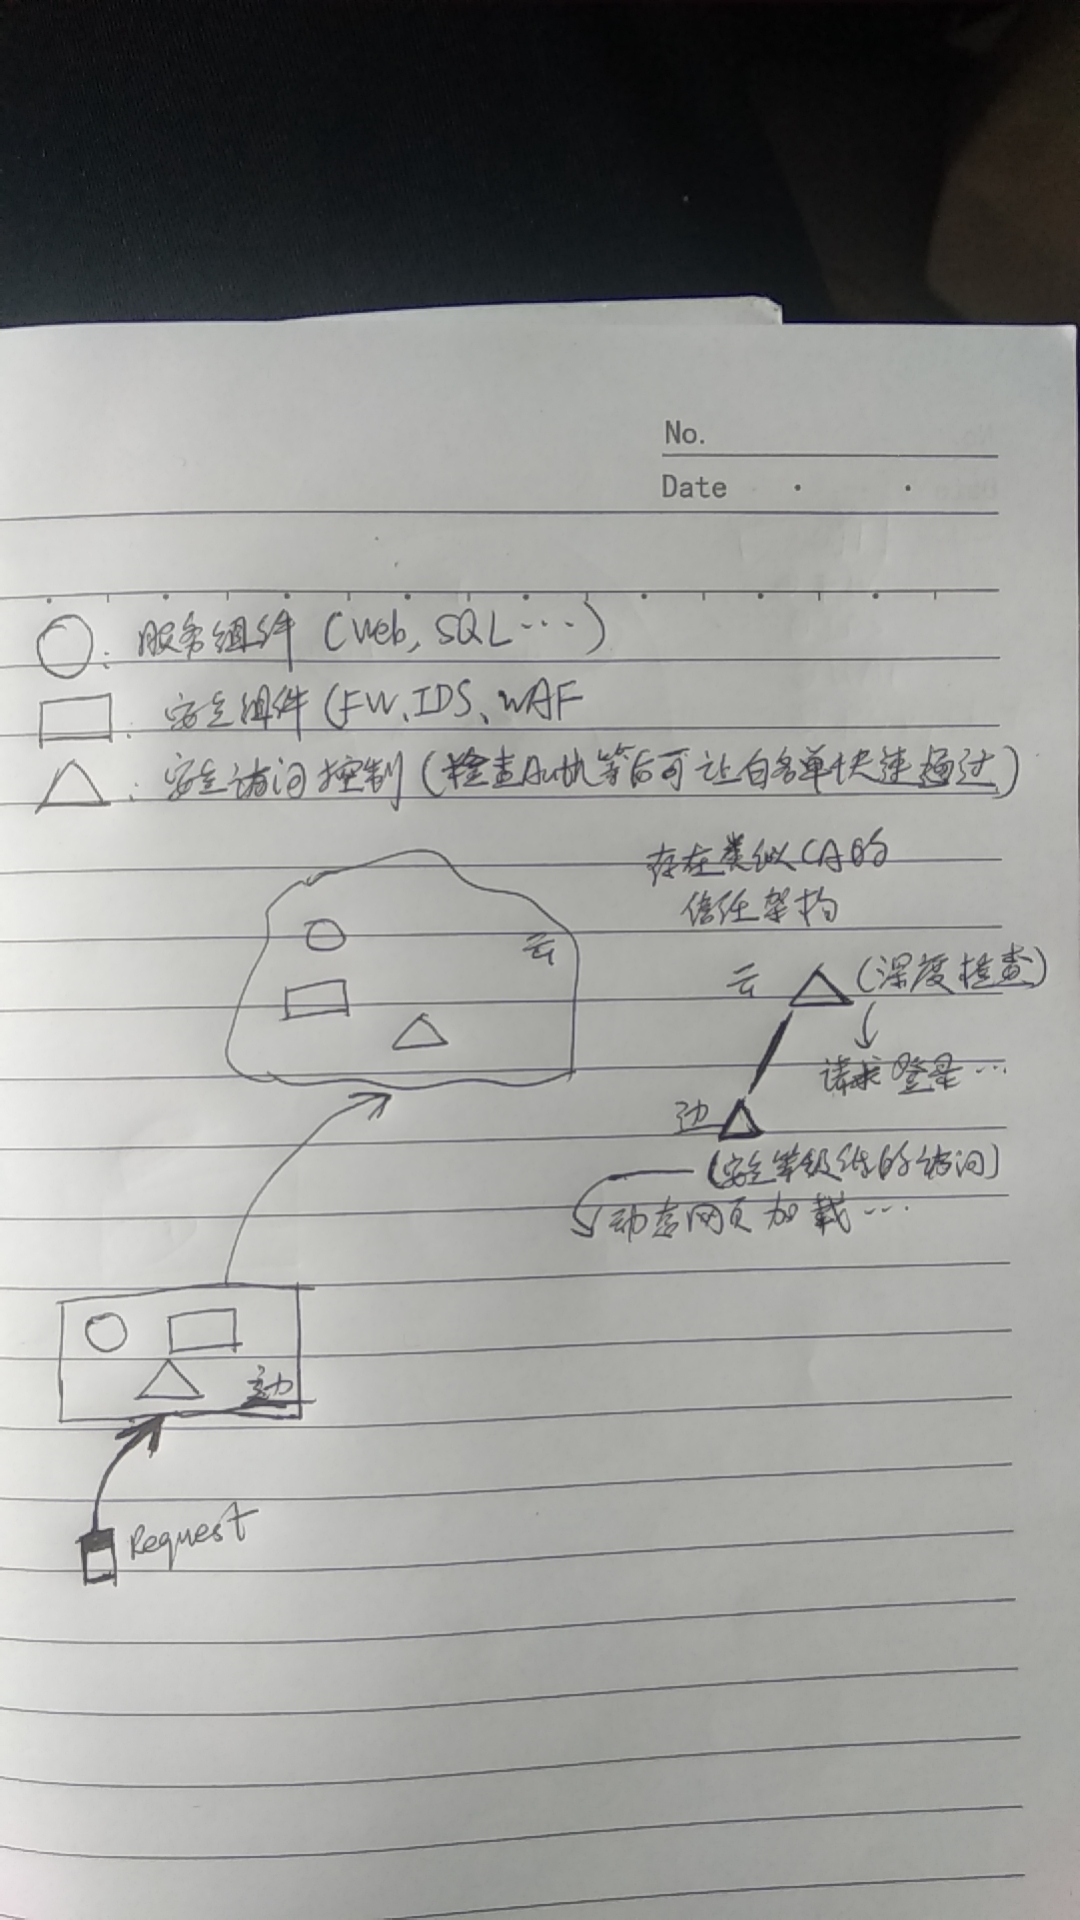 No.
Date
服务组件 (Web, SQL ...)
安全组件 (FW、IDS、WAF
安全访问控制 (检查Auth等后可让白名单快速通过)
存在类似CA的
信任架构
云
云 (深度检查)
请求登录...
边
(安全等级低的访问)
动态网页加载...
边
Request